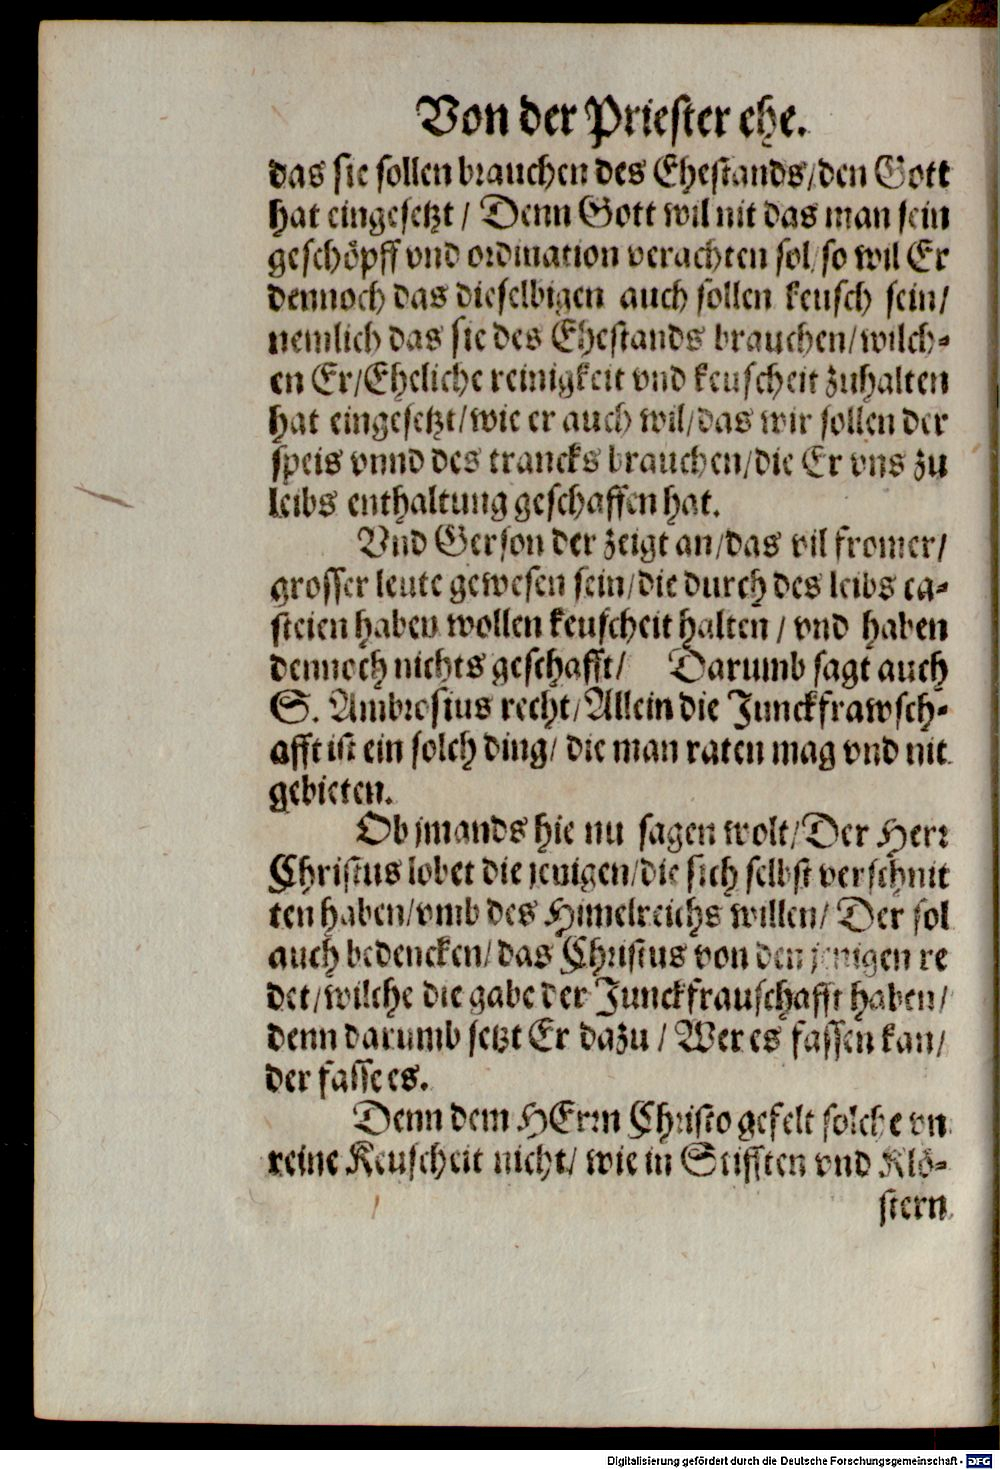 Von der Priester ehe.
das sie sollen brauchen des Ehestands/den Gott
hat eingesetzt / Denn Gott wil nit das man sein
geschöpff vnd ordination verachten sol/so wil Er
dennoch das dieselbigen auch sollen keusch sein/
nemlich das sie des Ehestands brauchen/wilch-
en Er/Eheliche reinigkeit vnd keuscheit zuhalten
hat eingesetzt/wie er auch wil/das wir sollen der
speis vnnd des trancks brauchen/die Er vns zu
leibs enthaltung geschaffen hat.
Vnd Gerson der zeigt an/das vil fromer/
grosser leute gewesen sein/die durch des leibs ca-
steien haben wollen keuscheit halten / vnd haben
dennoch nichts geschafft/ Darumb sagt auch
S. Ambrosius recht/Allein die Junckfrawsch-
afft ist ein solch ding/ die man raten mag vnd nit
gebieten.
Ob jmands hie nu sagen wolt/Der Herr
Christus lobet die jenigen/die sich selbst verschnit
ten haben/vmb des Himelreichs willen/ Der sol
auch bedencken/das Christus von den jenigen re
det/wilche die gabe der Junckfrauschafft haben/
denn darumb setzt Er dazu / Wer es fassen kan/
der fasse es.
Denn dem HErrn Christo gefelt solche vn
reine Keuscheit nicht/ wie in Stifften vnd Klö-
stern
Digitalisierung gefördert durch die Deutsche Forschungsgemeinschaft - DFG